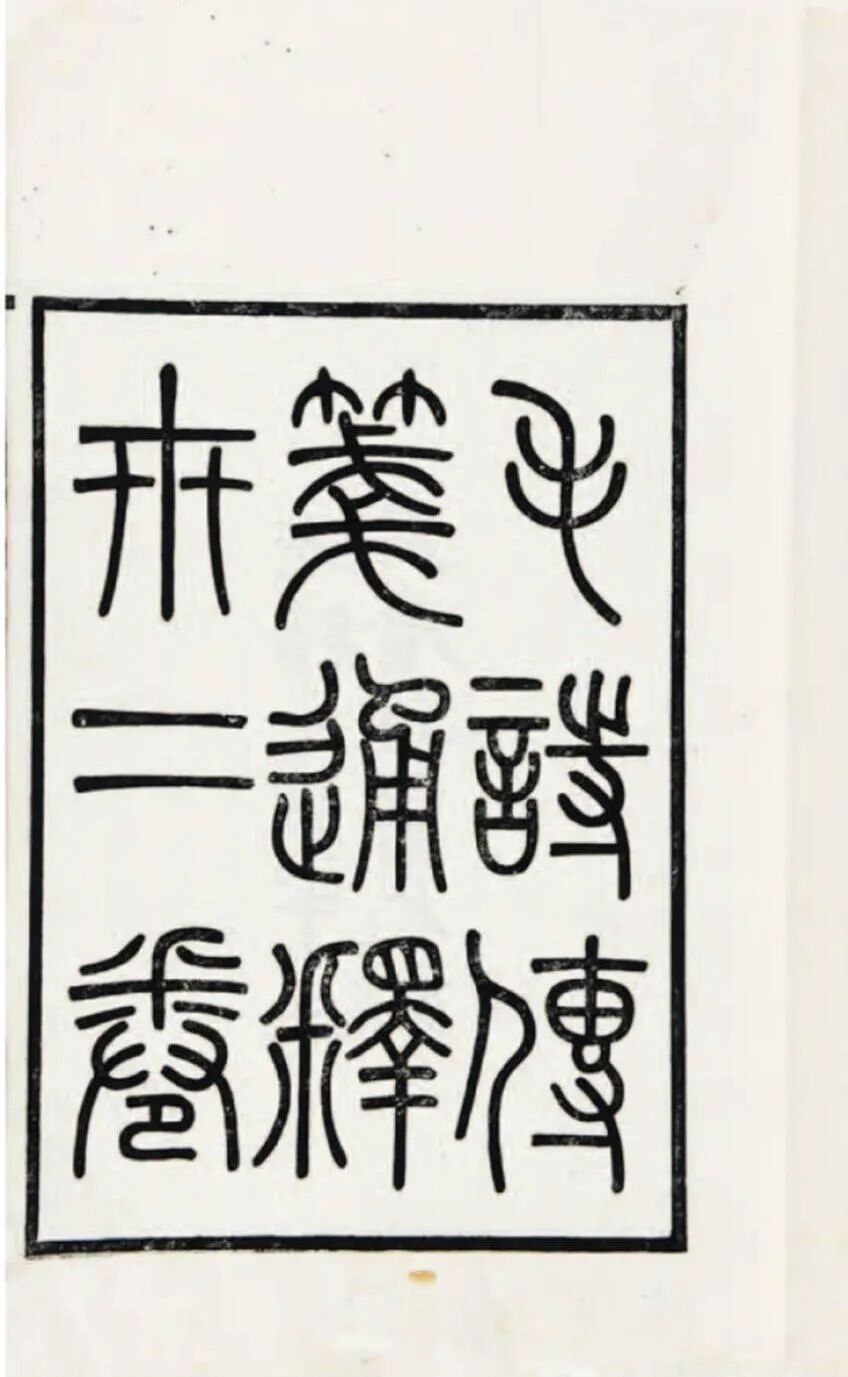 毛詩傳
箋通釋
卅二卷